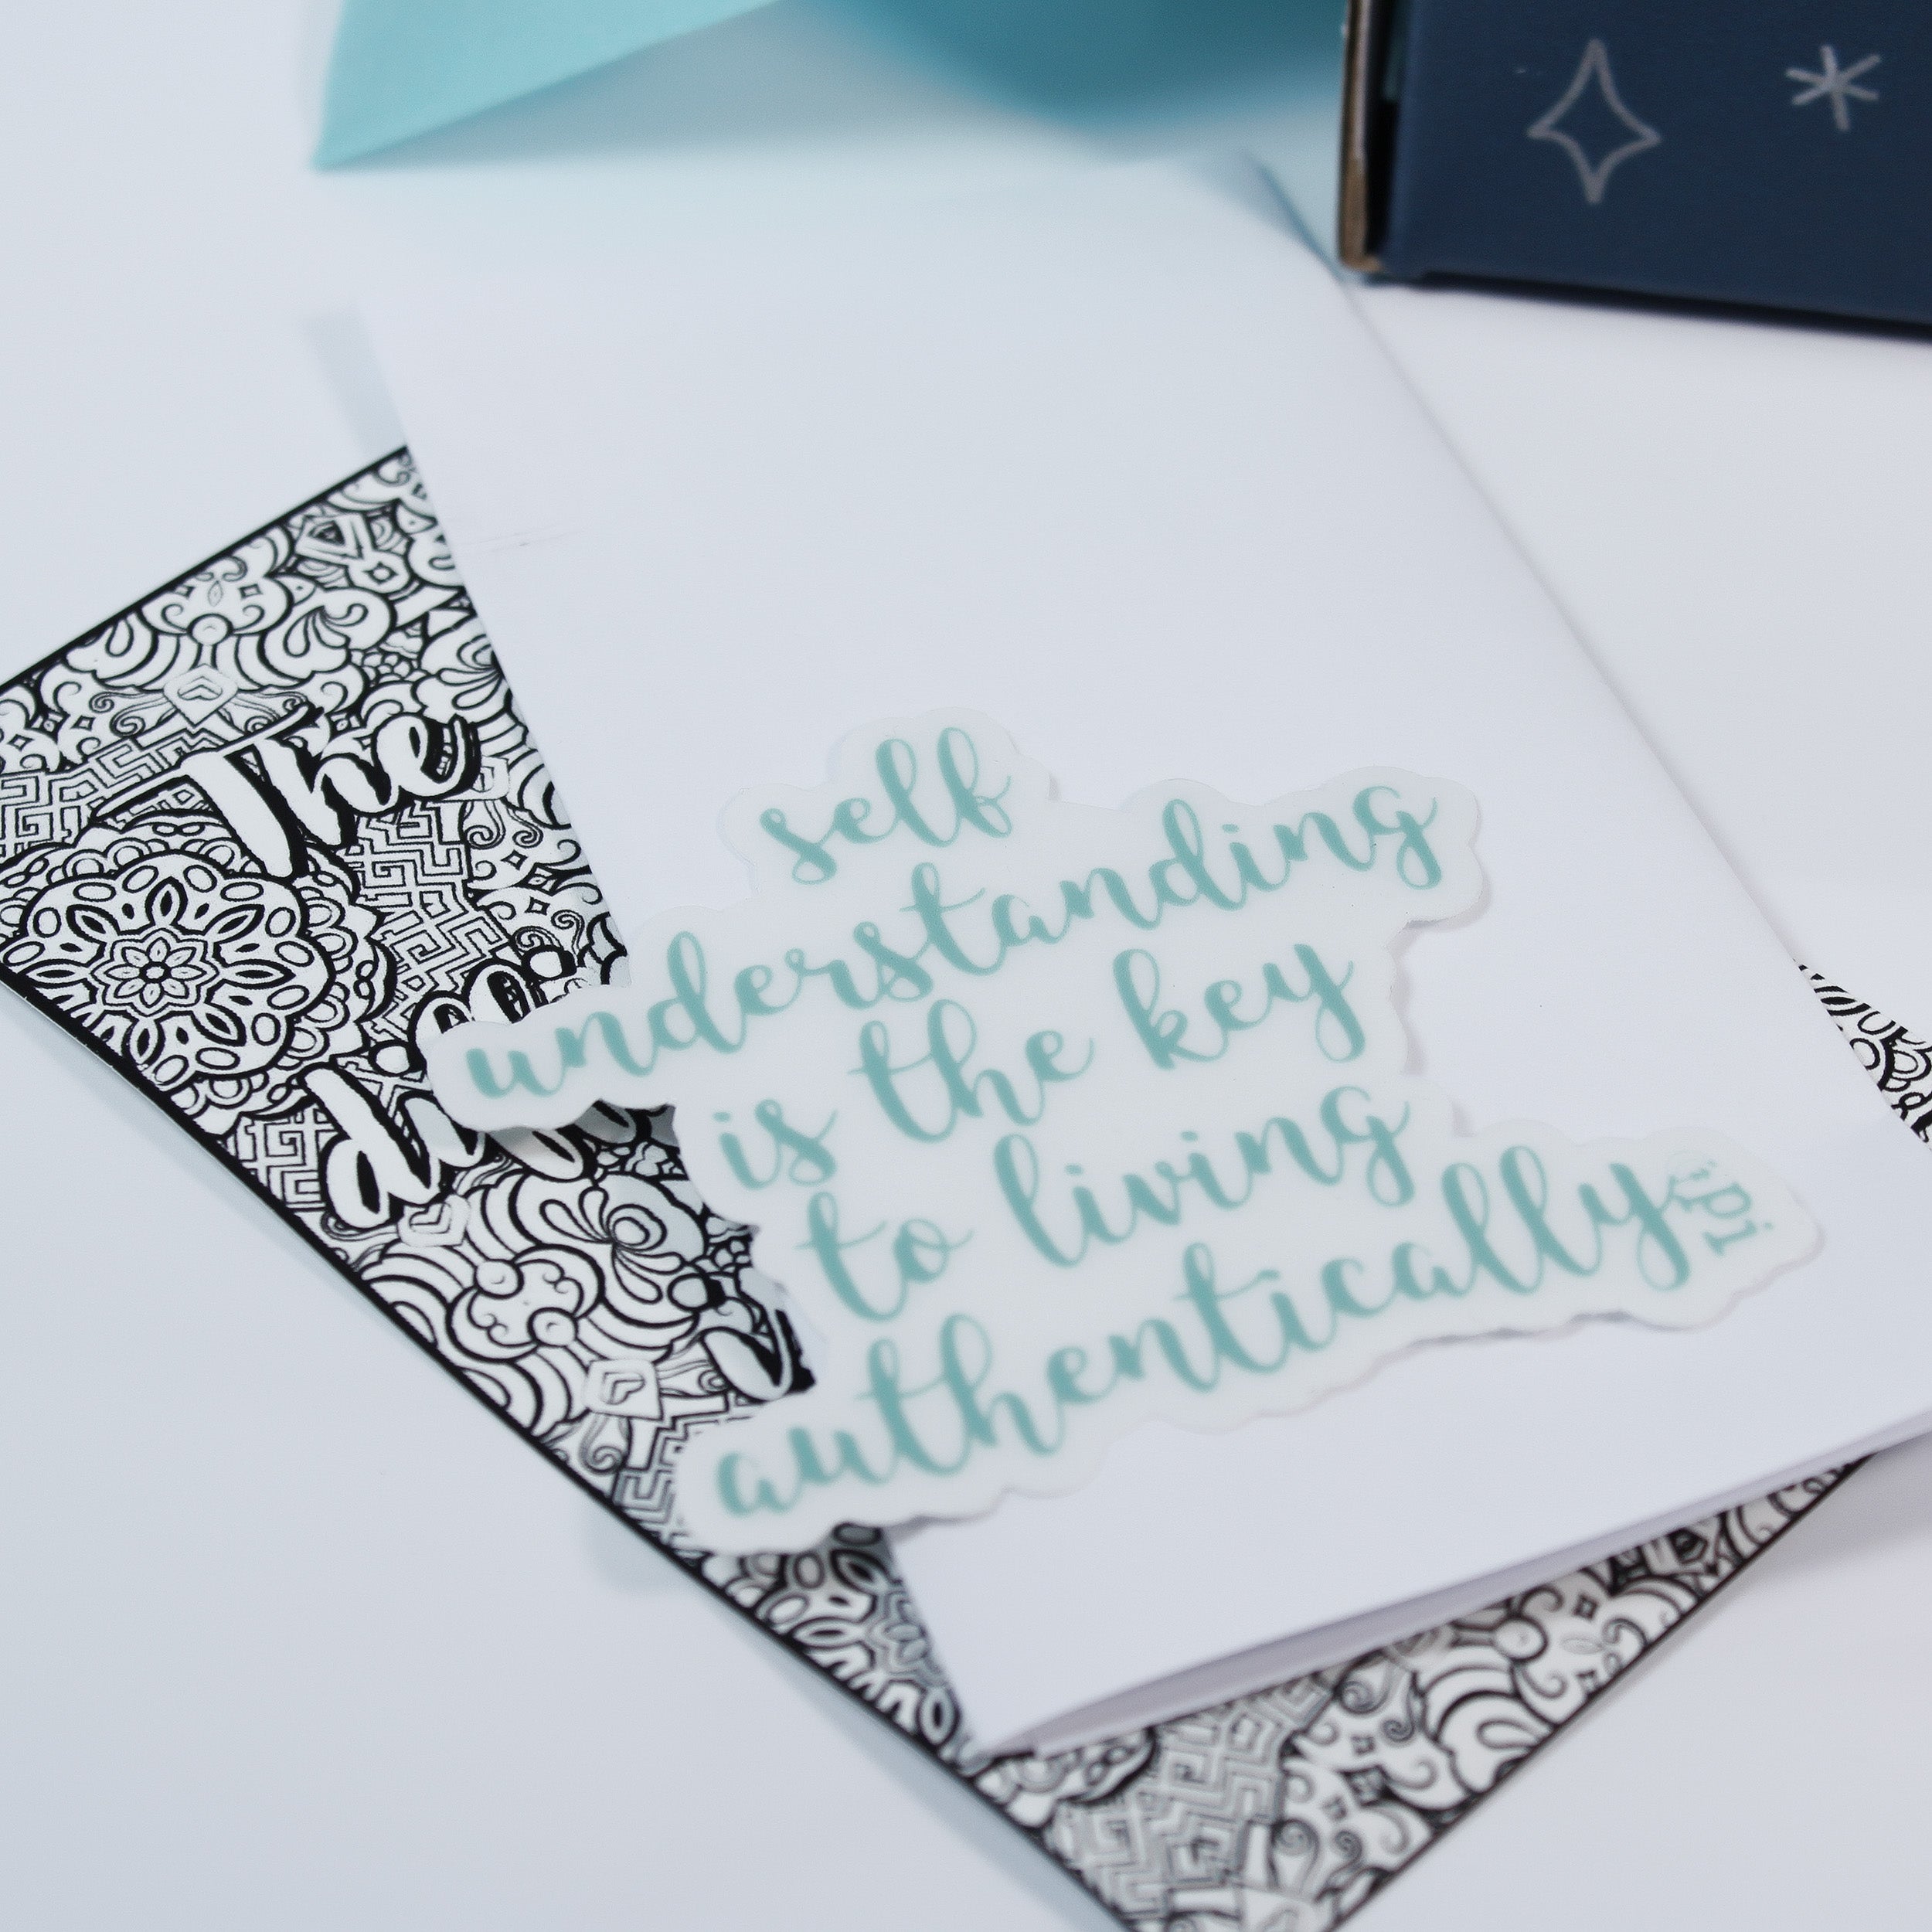 The
self
understanding
is the key
to living
authentically